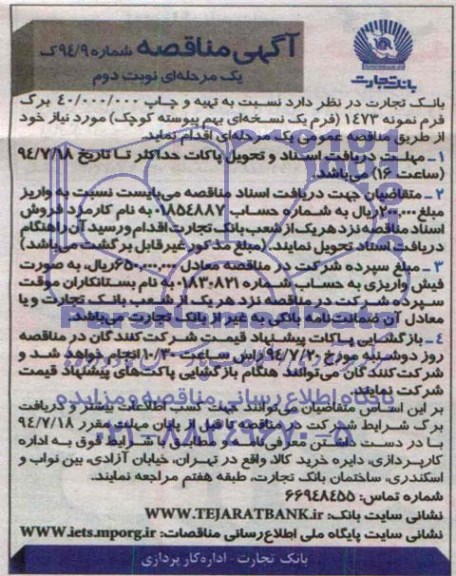 آگهی مناقصه شماره ۹۴/۹ک
یک مرحله‌ای نوبت دوم
بانک تجارت
بانک تجارت در نظر دارد نسبت به تهیه و چاپ ۴۰/۰۰۰/۰۰۰ برگ
فرم نمونه ۱۴۷۳ (فرم یک نسخه‌ای بهم پیوسته کوچک) مورد نیاز خود
از طریق مناقصه عمومی یک مرحله‌ای اقدام نماید.
۱ـ مهلت دریافت اسناد و تحویل پاکات حداکثر تا تاریخ ۹۴/۷/۱۸
(ساعت ۱۶) می‌باشد.
۲ ـ متقاضیان جهت دریافت اسناد مناقصه می‌بایست نسبت به واریز
مبلغ ۲۰۰.۰۰۰ریال به شماره حساب ۰۱۸۵۴۸۸۷ به نام کارمزد فروش
اسناد مناقصه نزد هر یک از شعب بانک تجارت اقدام و رسید آن را هنگام
دریافت اسناد تحویل نمایند. (مبلغ مذکور غیرقابل برگشت می‌باشد)
۳ ـ مبلغ سپرده شرکت در مناقصه معادل ۶۵۰.۰۰۰.۰۰۰ریال، به صورت
فیش واریزی به حساب شماره ۰۱۸۳۰۸۲۱ به نام بستانکاران موقت
سپرده شرکت در مناقصه نزد هر یک از شعب بانک تجارت و یا
معادل آن ضمانت‌نامه بانکی به غیر از بانک تجارت می‌باشد.
۴ ـ بازگشایی پاکات پیشنهاد قیمت شرکت‌کنندگان در مناقصه
روز دوشنبه مورخ ۹۴/۷/۲۰ راس ساعت ۱۰/۳۰ انجام خواهد شد و
شرکت‌کنندگان می‌توانند هنگام بازگشایی پاکت‌های پیشنهاد قیمت
شرکت نمایند.
بر این اساس متقاضیان می‌توانند جهت کسب اطلاعات بیشتر و دریافت
برگ شرایط شرکت در مناقصه تا قبل از پایان مهلت مقرر ۹۴/۷/۱۸
با در دست داشتن معرفی‌نامه و مطابق با شرایط فوق به اداره
کارپردازی، دایره خرید کالا، واقع در تهران، خیابان آزادی، بین نواب و
اسکندری، ساختمان بانک تجارت، طبقه هفتم مراجعه نمایند.
شماره تماس: ۶۶۹۴۸۴۵۵
نشانی سایت بانک: WWW.TEJARATBANK.ir
نشانی سایت پایگاه ملی اطلاع‌رسانی مناقصات: WWW.iets.mporg.ir
بانک تجارت - اداره کارپردازی
ParsNamadData
پایگاه اطلاع رسانی مناقصه و مزایده